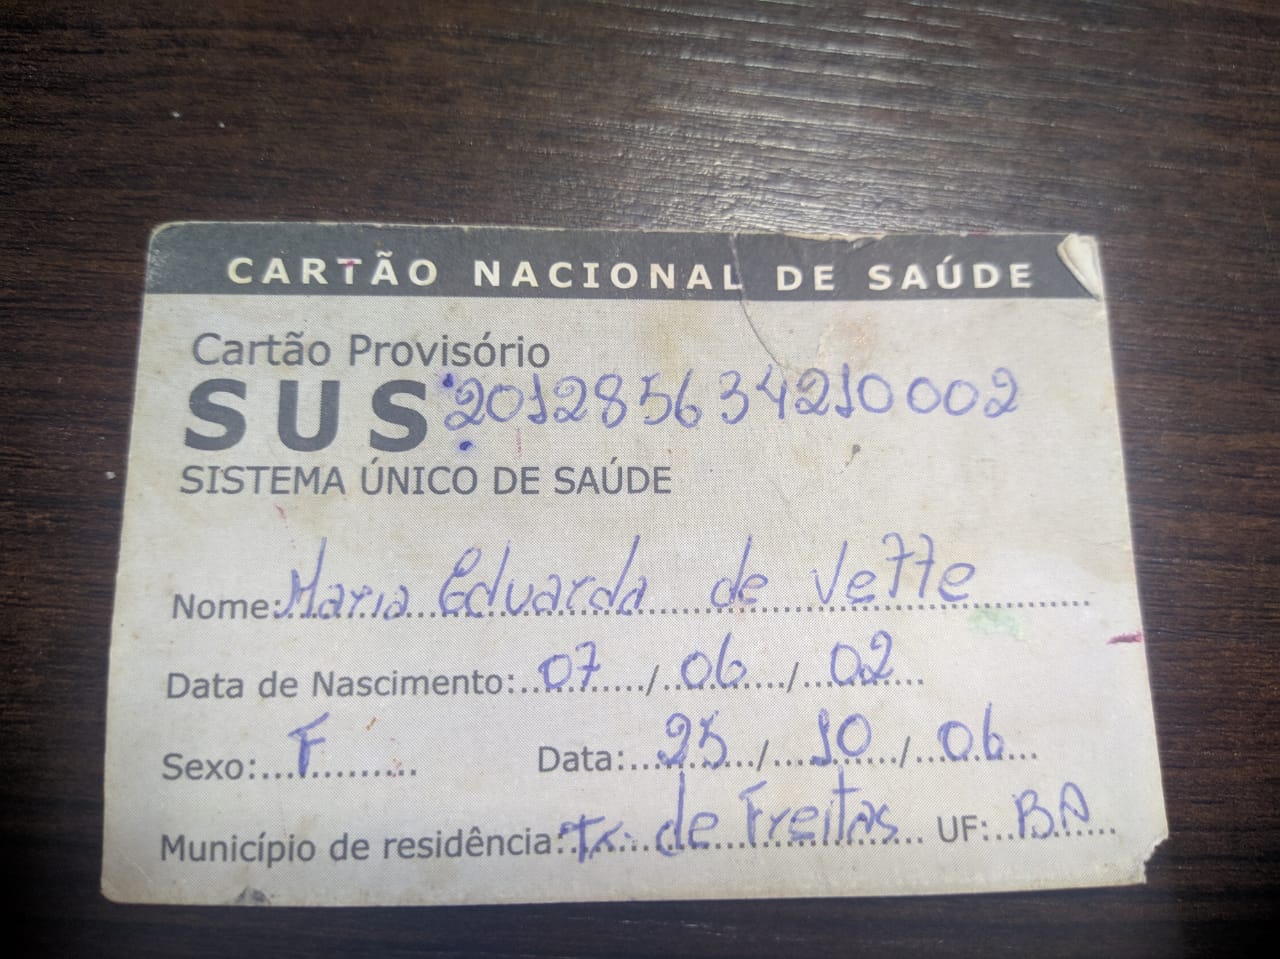 CARTÃO NACIONAL DE SAÚDE
Cartão Provisório
SUS 201285634210002
SISTEMA ÚNICO DE SAÚDE
Nome: Maria Eduarda de Vette
Data de Nascimento: 07/06/02
Sexo: F Data: 25/10/06
Município de residência: Tx. de Freitas UF: BA